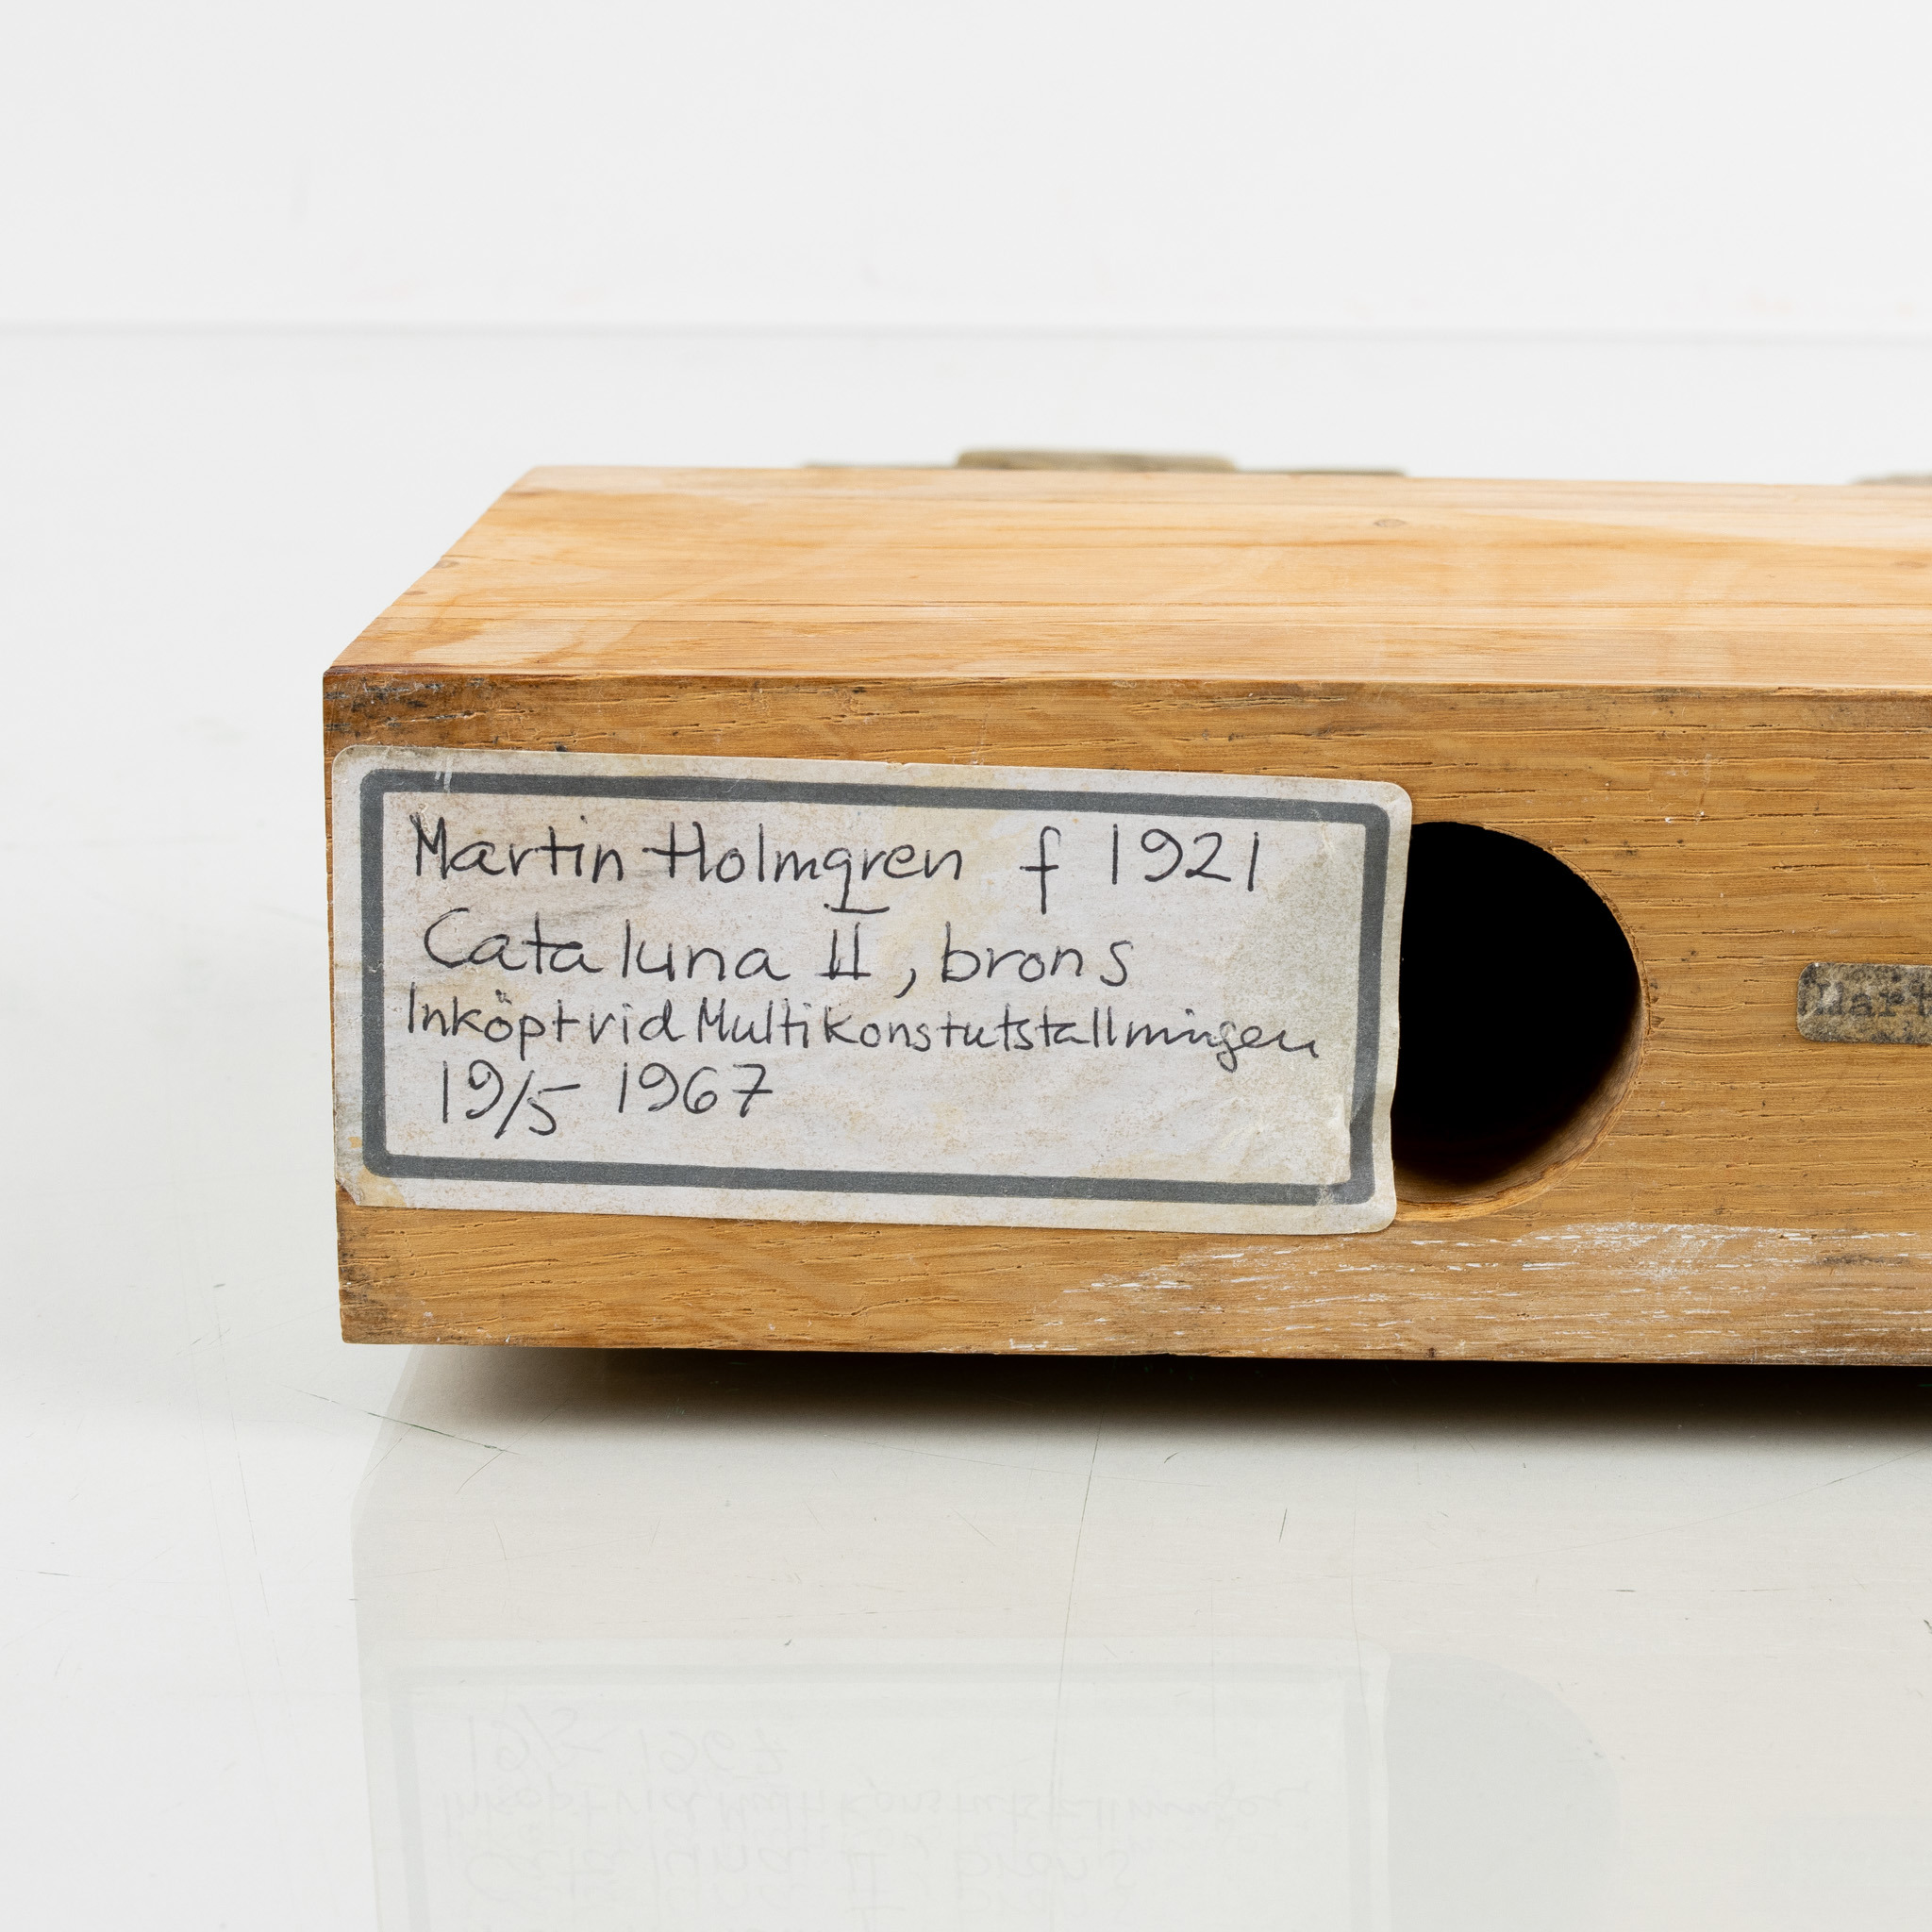 Martin Holmgren f 1921
Cataluna II, brons
Inköpt vid Multikonstutställningen
19/5 1967
Mart